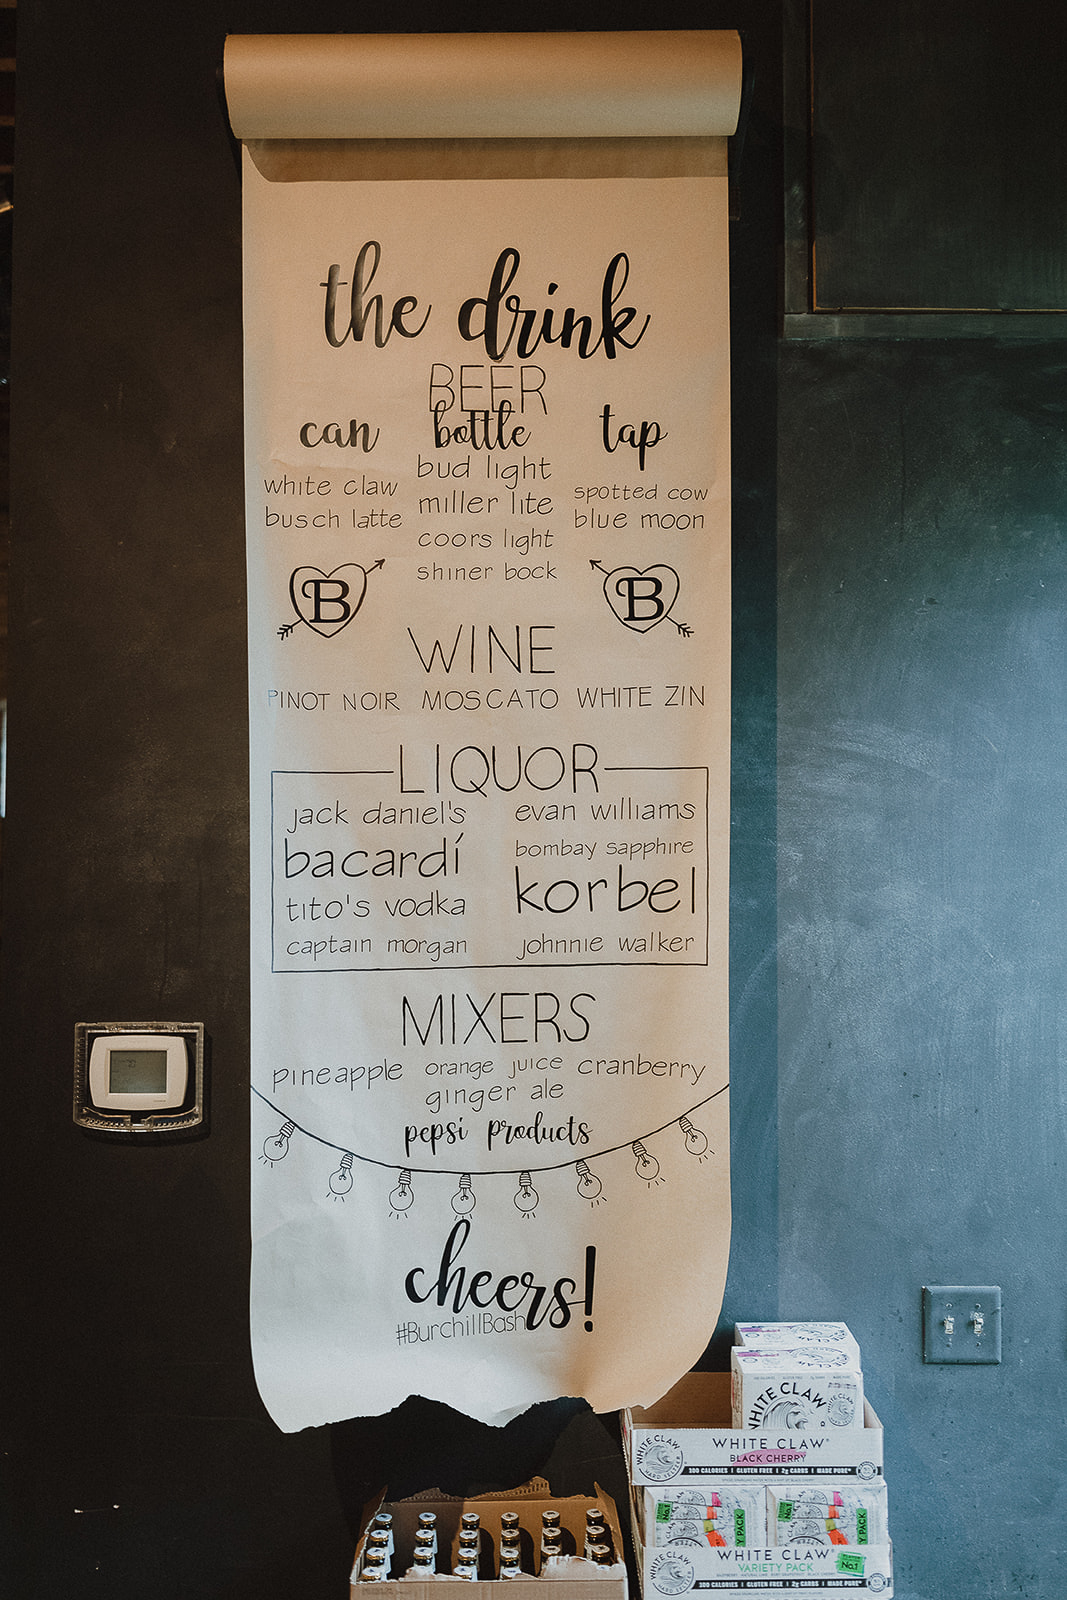 the drink
BEER
can bottle tap
white claw
busch latte
bud light
miller lite
coors light
shiner bock
spotted cow
blue moon
B B
WINE
PINOT NOIR MOSCATO WHITE ZIN
LIQUOR
jack daniel's
bacardí
tito's vodka
captain morgan
evan williams
bombay sapphire
korbel
johnnie walker
MIXERS
pineapple orange juice cranberry
ginger ale
pepsi products
cheers!
#BurchillBash
WHITE CLAW
WHITE CLAW
HARD SELTZER
WHITE CLAW
BLACK CHERRY
100 CALORIES | GLUTEN FREE | 2g CARBS | MADE PURE
WHITE CLAW
HARD SELTZER
WHITE CLAW
VARIETY PACK
No.1
100 CALORIES | GLUTEN FREE | 2g CARBS | MADE PURE